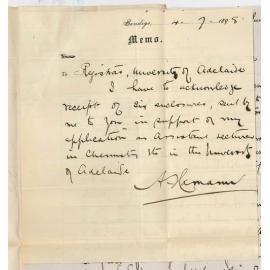 Bendigo, 4-7-1898
Memo.
To Registrar, University of Adelaide
I have to acknowledge
receipt of six enclosures, sent by
me to you in support of my
application as Assistant Lecturer
in Chemistry &c in the University
of Adelaide